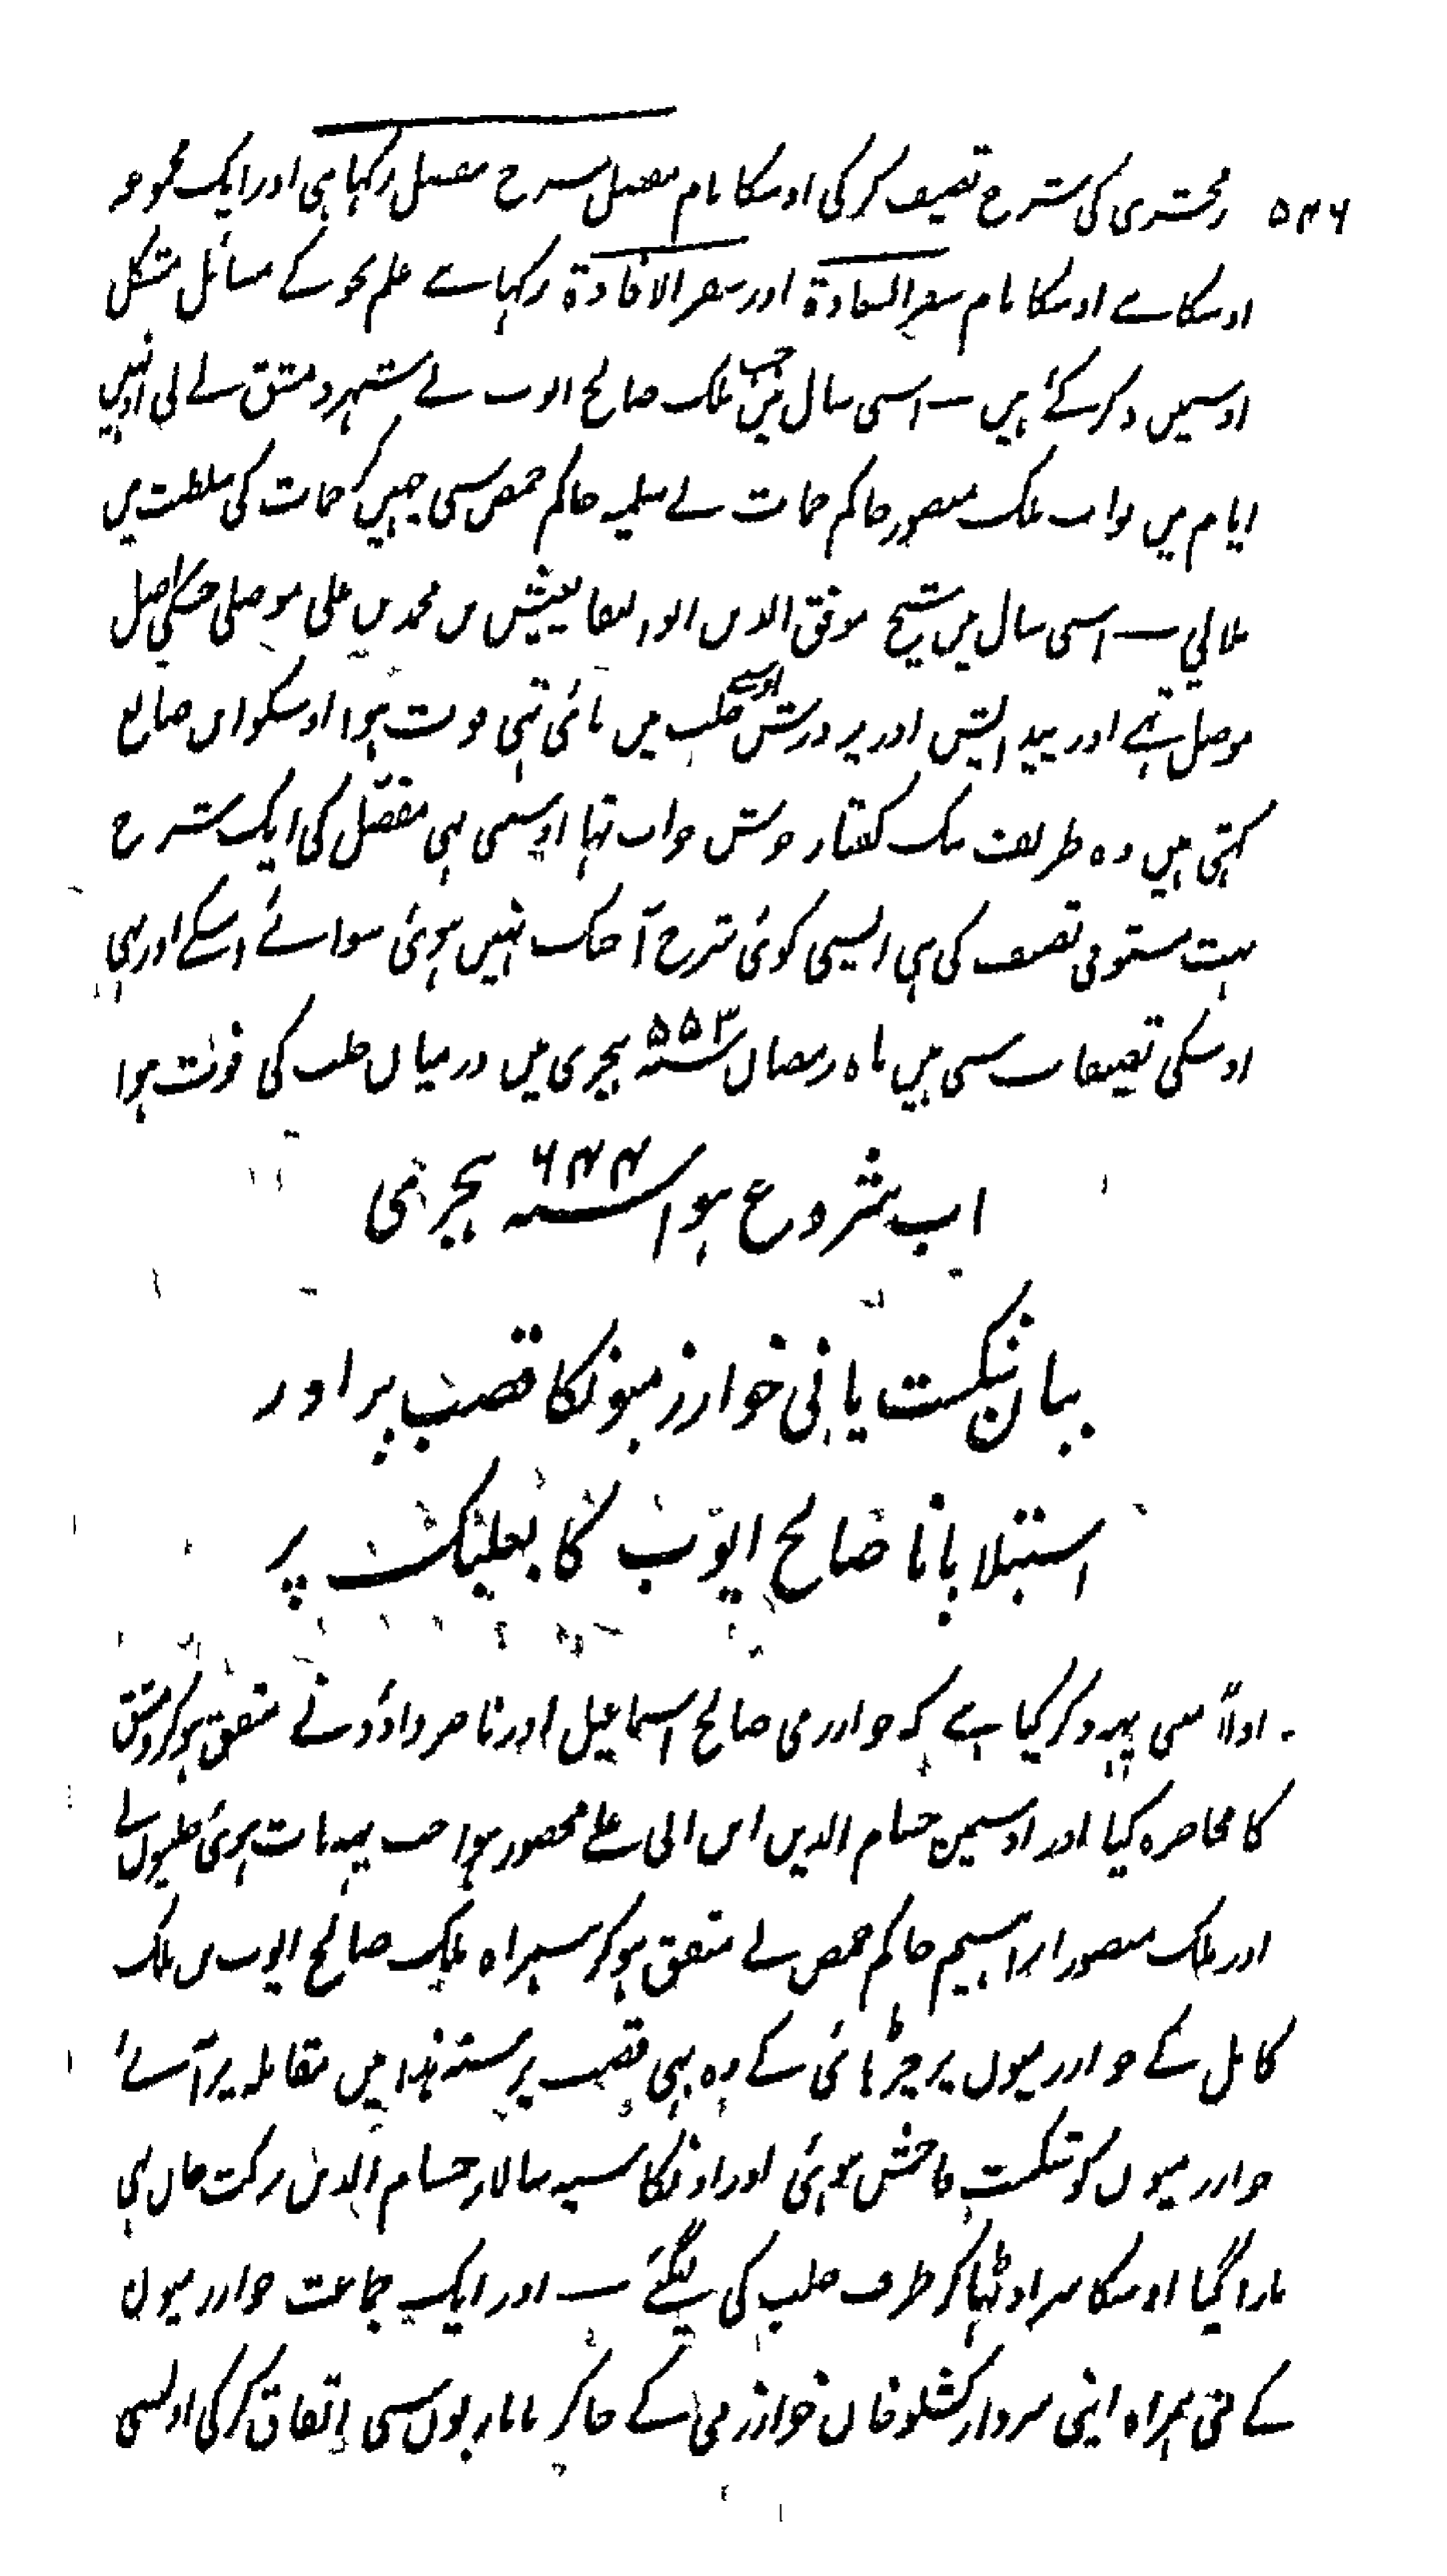 ۵۴۶ زمخشری کی شرح تصنیف کرکی اوسکا نام مفضل شرح مفصل رکہا ہی اور ایک مجموعہ
اوسکا ہے اوسکا نام سفر السعادۃ اور سفر الافادۃ رکہا ہے علم نحو کے مسائل مشکل
اوسمیں ذکر کئے ہیں — اسی سال میں جب ملک صالح ایوب نے شہر دمشق لے لی اونہیں
ایام میں نواب ملک منصور حاکم حمات نے سلمیہ حاکم حمص سی چہین کر حمات کی سلطنت میں
ملالی — اسی سال میں شیخ موفق الدین ابو البقا یعیش بن محمد بن علی موصلی جسکی اصل
موصل تہے اور پیدایش اور پرورش اوسنے حلب میں پائی تہی فوت ہوا اوسکو ابن صانع
کہتی ہیں وہ ظریف نیک گفتار خوش جواب تہا اوسی ہی مفصل کی ایک شرح
بہت مستوفی تصنیف کی ہی ایسی کوئی شرح آجتک نہیں ہوئی سوائے اسکے اور بہی
اوسکی تصنیفات سی ہیں ماہ رمضان سنہ ۵۵۳ ہجری میں درمیان حلب کی فوت ہوا
اب شروع ہوا سنہ ۶۴۴ ہجری
بیان شکست پانی خوارزمیونکا قصب پر اور
استیلا پانا صالح ایوب کا بعلبک پر
اولاً سی یہہ ذکر کیا ہے کہ خوارزمی صالح اسماعیل اور ناصر داؤد نے متفق ہوکر دمشق
کا محاصرہ کیا اور اوسمین حسام الدین ابن ابی علی محصور ہوا جب یہہ بات ہوئی حلبیوں نے
اور ملک منصور ابراہیم حاکم حمص نے متفق ہوکر ہمراہ ملک صالح ایوب بن ملک
کامل کے خوارزمیوں پر چڑہائی کے وہ بہی قصب پر سنہ ہذا میں مقابلہ پر آئے
خوارزمیوں کو شکست فاحش ہوئی اور اونکا سپہ سالار حسام الدین برکت خان بہی
مارا گیا اوسکا سر اوٹہا کر طرف حلب کی لیگئے — اور ایک جماعت خوارزمیوں
کے بہی ہمراہ اپنی سردار کشلو خان خوارزمی کے جاکر تاتاریوں سی اتفاق کرکی اونسی